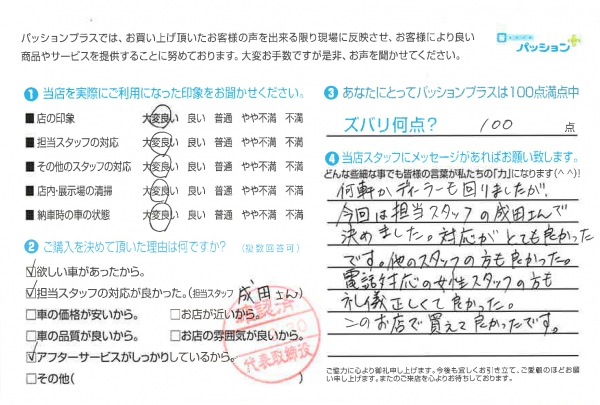 パッションプラスでは、お買い上げ頂いたお客様の声を出来る限り現場に反映させ、お客様により良い
商品やサービスを提供することに努めております。大変お手数ですが是非、お声を聞かせてください。
パッション
1 当店を実際にご利用になった印象をお聞かせください。
■店の印象 大変良い 良い 普通 やや不満 不満
■担当スタッフの対応 大変良い 良い 普通 やや不満 不満
■その他のスタッフの対応 大変良い 良い 普通 やや不満 不満
■店内・展示場の清掃 大変良い 良い 普通 やや不満 不満
■納車時の車の状態 大変良い 良い 普通 やや不満 不満
2 ご購入を決めて頂いた理由は何ですか? (複数回答可)
☑欲しい車があったから。
☑担当スタッフの対応が良かった。(担当スタッフ 成田さん)
□車の価格が安いから。 □お店が近いから。
□車の品質が良いから。 □お店の雰囲気が良いから。
☑アフターサービスがしっかりしているから。
□その他( )
確認済
代表取締役
3 あなたにとってパッションプラスは100点満点中
ズバリ何点? 100 点
4 当店スタッフにメッセージがあればお願い致します。
どんな些細な事でも皆様の言葉が私たちの「力」になります(^^)!
何軒か、ディーラーも回りましたが、
今回は担当スタッフの成田さんで
決めました。対応がとても良かった
です。他のスタッフの方も良かった。
電話対応の女性スタッフの方も
礼儀正しくて良かった。
このお店で買えて良かったです。
ご協力に心より御礼申し上げます。今後も宜しくお引き立て、ご愛顧のほどお願
い申し上げます。またのご来店を心よりお待ちしております。